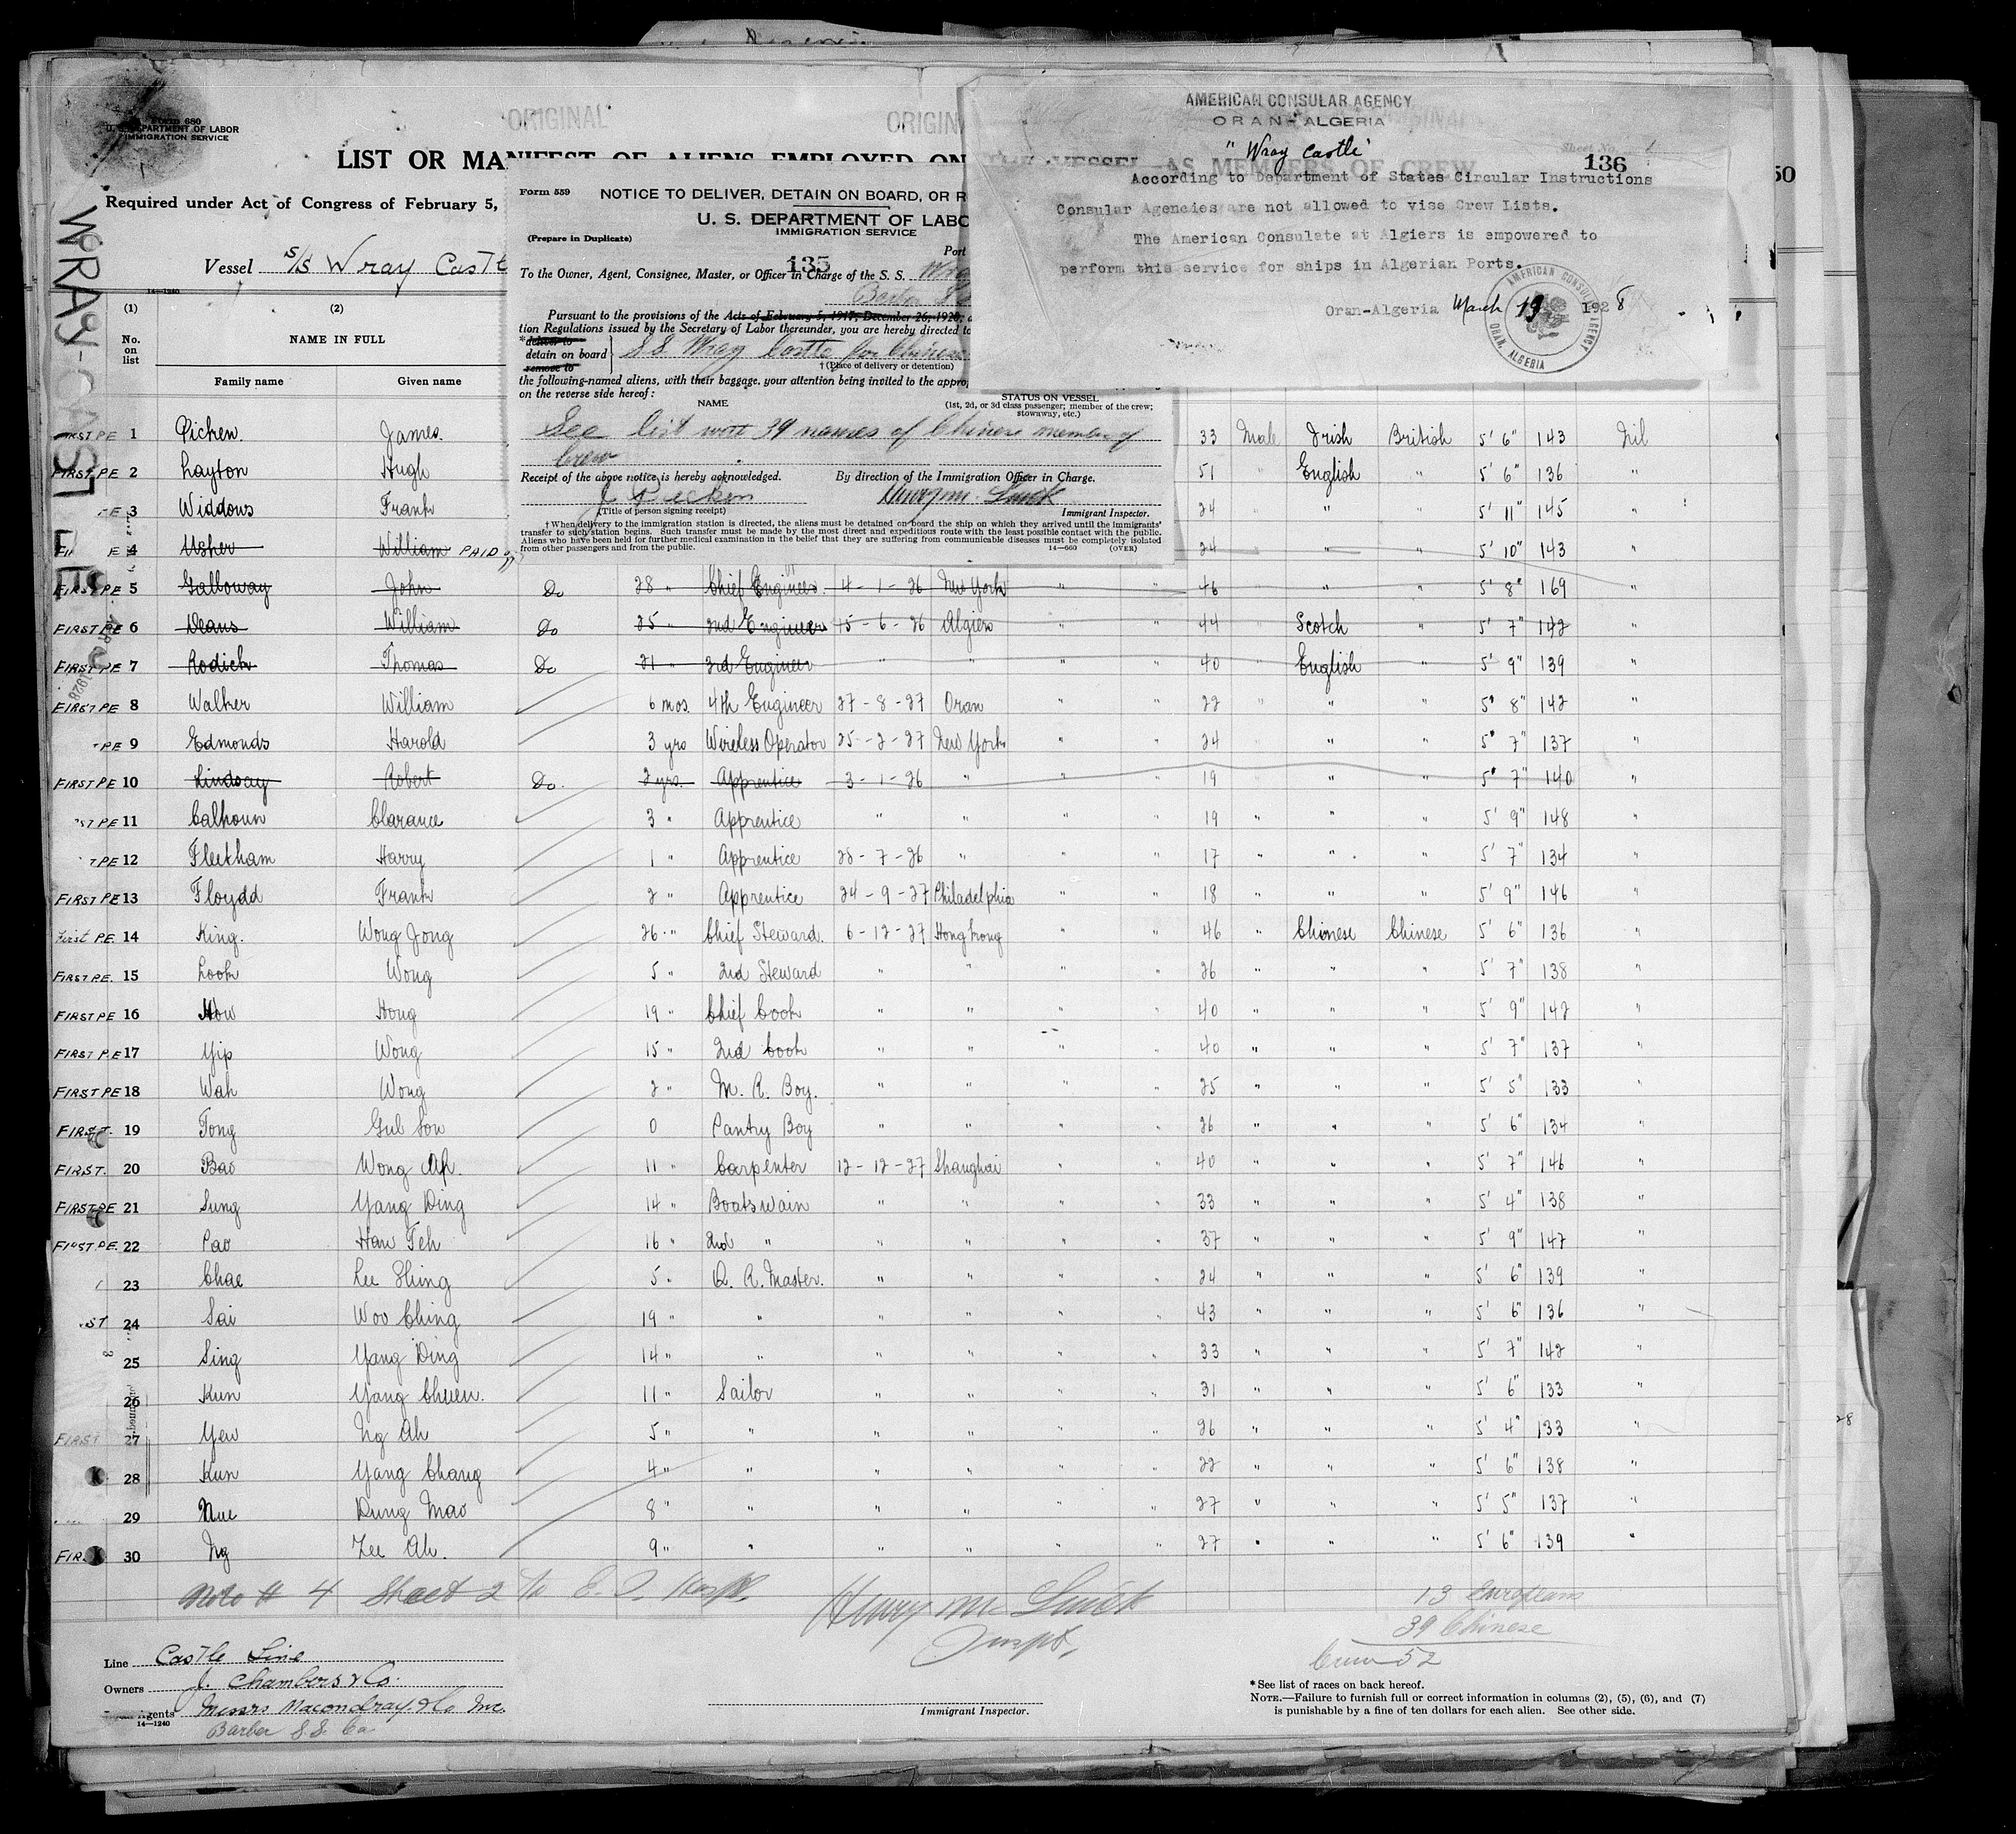 ORIGINAL
ORIGIN
Form 680
U. S. DEPARTMENT OF LABOR
IMMIGRATION SERVICE
AMERICAN CONSULAR AGENCY
ORAN - ALGERIA
"Wray Castle"
136
According to Department of States Circular Instructions
Consular Agencies are not allowed to vise Crew Lists.
The American Consulate at Algiers is empowered to
perform this service for ships in Algerian Ports.
Oran-Algeria March 19 1928
AMERICAN CONSULAR AGENCY
ORAN, ALGERIA
50
LIST OR MANIFEST OF ALIENS EMPLOYED ON THE VESSEL AS MEMBERS OF CREW
Required under Act of Congress of February 5,
WRAY-CASTLE
Vessel S/S Wray Castle
Form 559
NOTICE TO DELIVER, DETAIN ON BOARD, OR R
U. S. DEPARTMENT OF LABO
IMMIGRATION SERVICE
(Prepare in Duplicate)
Port
135
To the Owner, Agent, Consignee, Master, or Officer in Charge of the S. S. Wra
Barber
Pursuant to the provisions of the Acts of February 5, 1917, December 26, 1920,
tion Regulations issued by the Secretary of Labor thereunder, you are hereby directed to
*deliver to
detain on board
remove to
S.S Wray Castle for Chinese
†(Place of delivery or detention)
the following-named aliens, with their baggage, your attention being invited to the appro
on the reverse side hereof:
NAME
STATUS ON VESSEL
(1st, 2d, or 3d class passenger; member of the crew;
stowaway, etc.)
See list with 39 names of Chinese member of
Crew
Receipt of the above notice is hereby acknowledged.
By direction of the Immigration Officer in Charge.
(Title of person signing receipt)
Immigrant Inspector.
†When delivery to the immigration station is directed, the aliens must be detained on board the ship on which they arrived until the immigrants'
transfer to such station begins. Such transfer must be made by the most direct and expeditious route with the least possible contact with the public.
Aliens who have been held for further medical examination in the belief that they are suffering from communicable diseases must be completely isolated
from other passengers and from the public.
14—660 (OVER)
14—1240
(1) (2)
No. on list
NAME IN FULL
Family name Given name
FIRST PE 1 Picken. James. 33 Male Irish British 5' 6" 143 Nil
FIRST PE 2 Layton Hugh 51 " English " 5' 6" 136 "
PE 3 Widdows Frank 24 " " 5' 11" 145 "
4 Usher William PAID 24 " " 5' 10" 143 "
FIRST PE 5 Galloway John Do 28 " Chief Engineer. 4-1-26 New York " " 46 " " 5' 8" 169 "
FIRST PE 6 Deans William Do 25 " 2nd Engineer 15-6-26 Algiers " " 44 " Scotch " 5' 7" 142 "
FIRST PE 7 Rodick Thomas Do 21 " 3rd Engineer " " " " 40 " English " 5' 9" 139 "
FIRST PE 8 Walker William 6 mos. 4th Engineer 27-8-27 Oran " " 22 " " " 5' 8" 142 "
PE 9 Edmonds Harold 3 yrs Wireless Operator 25-2-27 New York " " 24 " " 5' 7" 137 "
FIRST PE 10 Lindsay Robert Do. 2 yrs. Apprentice 3-1-26 " " " 19 " " 5' 7" 140 "
ST PE 11 Calhoun Clarance 3 " Apprentice " " " " 19 " " " 5' 9" 148 "
PE 12 Fleetham Harry 1 " Apprentice 28-7-26 " " " 17 " " " 5' 7" 134 "
FIRST PE 13 Floydd Frank 2 " Apprentice 24-9-27 Philadelphia " " 18 " " " 5' 9" 146 "
First P.E. 14 King. Wong Jong 26 " Chief Steward. 6-12-27 Hong kong " " 46 " Chinese Chinese 5' 6" 136 "
FIRST PE. 15 Look Wong 5 " 2nd Steward " " " " 26 " " " 5' 7" 138 "
FIRST PE 16 How Hong 19 " Chief Cook " " " " 40 " " " 5' 9" 142 "
FIRST P.E 17 Yip Wong 15 " 2nd Cook " " " " 40 " " " 5' 7" 137 "
FIRST PE 18 Wah Wong 2 " M. R. Boy. " " " " 25 " " " 5' 5" 133 "
FIRST. 19 Tong Gul Son 0 Pantry Boy " " " " 26 " " " 5' 6" 134 "
FIRST. 20 Bao Wong Ah. 11 " Carpenter 12-12-27 Shanghai " " 40 " " " 5' 7" 146 "
FIRST PE 21 Sung Yang Ding 14 " Boatswain " " " " 33 " " " 5' 4" 138 "
FIRST PE. 22 Pao Haw Feh 16 " 2nd " " " " " 37 " " " 5' 9" 147 "
23 Chae Lee Shing 5 " Q. R. Master. " " " " 24 " " " 5' 6" 139 "
ST 24 Sai Woo Ching 19 " " " " " " 43 " " " 5' 6" 136 "
25 Sing Yang Ding 14 " " " " " " 33 " " " 5' 7" 142 "
26 Kun Yang Chuen. 11 " Sailor " " " " 31 " " " 5' 6" 133 "
FIRST 27 Yew Ng Ah 5 " " " " " " 26 " " " 5' 4" 133 "
28 Kun Yang Chang 4 " " " " " " 22 " " " 5' 6" 138 "
29 Nue Dung Mao 8 " " " " " " 27 " " " 5' 5" 137 "
FIRS 30 Ng Zee Ah. 9 " " " " " " 27 " " " 5' 6" 139 "
Note # 4 Sheet 2
13 Europeans
39 Chinese
Crew 52
Line Castle Line
Owners J. Chambers & Co.
Agents Messrs Macondray & Co Inc.
14—1240
Barber S.S. Co
Immigrant Inspector.
*See list of races on back hereof.
NOTE.—Failure to furnish full or correct information in columns (2), (5), (6), and (7)
is punishable by a fine of ten dollars for each alien. See other side.